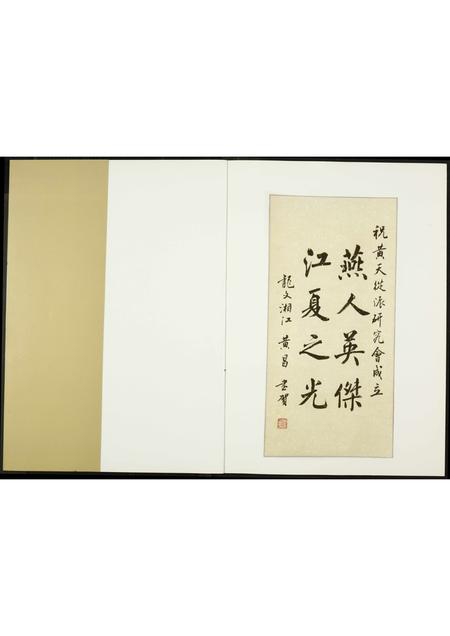 祝黄天從派研究會成立
燕人英傑
江夏之光
龍文湘江 黄昌 書賀